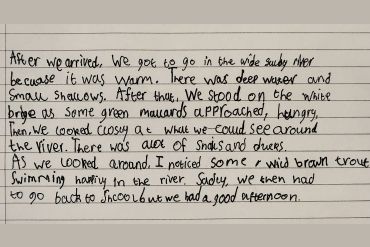 After we arrived, We got to go in the wide sandy river
becuase it was warm. There was deep water and
Small shallows. After that, We stood on the white
brige as some green mallards approached, hungry,
Then, We looked closly at what we could see around
the river. There was alot of Snails and ducks.
As we looked around, I noticed some, wild brown trout
Swimming happily in the river. Sadly, we then had
to go back to Shcool but we had a good afternoon.